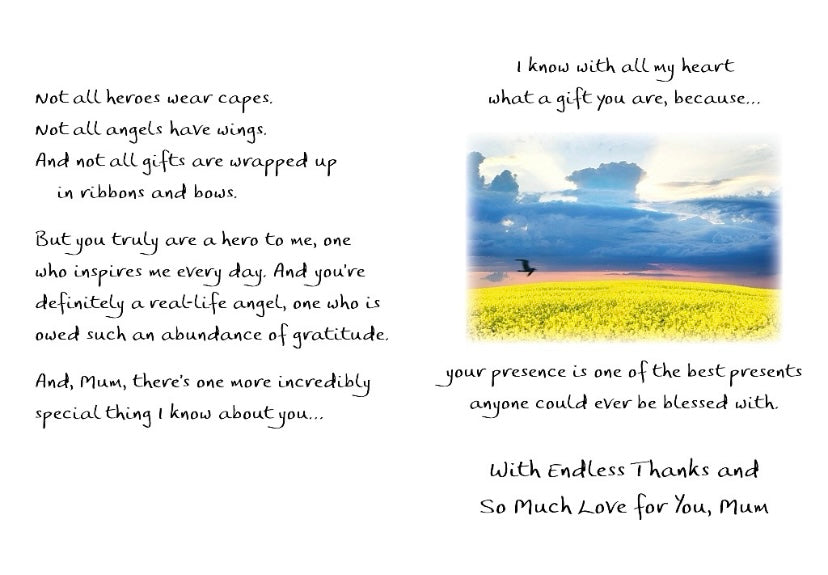 Not all heroes wear capes.
Not all angels have wings.
And not all gifts are wrapped up
in ribbons and bows.
But you truly are a hero to me, one
who inspires me every day. And you're
definitely a real-life angel, one who is
owed such an abundance of gratitude.
And, Mum, there's one more incredibly
special thing I know about you...
I know with all my heart
what a gift you are, because...
your presence is one of the best presents
anyone could ever be blessed with.
With Endless Thanks and
So Much Love for You, Mum